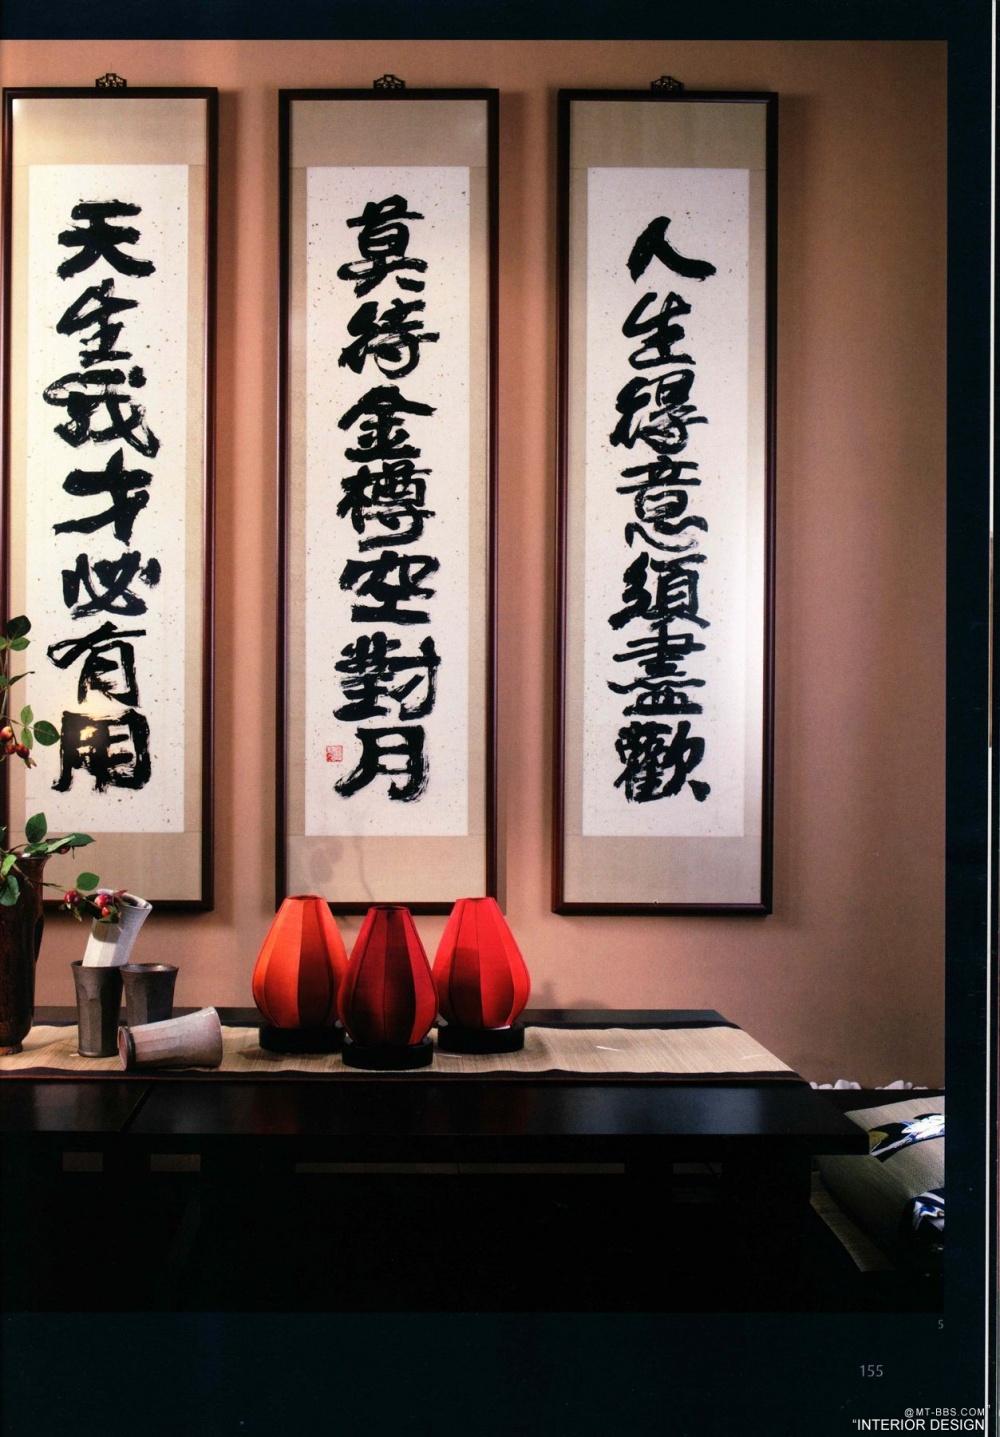 人生得意須盡歡
莫待金樽空對月
天生我才必有用
5
155
@MT-BBS.COM
"INTERIOR DESIGN"